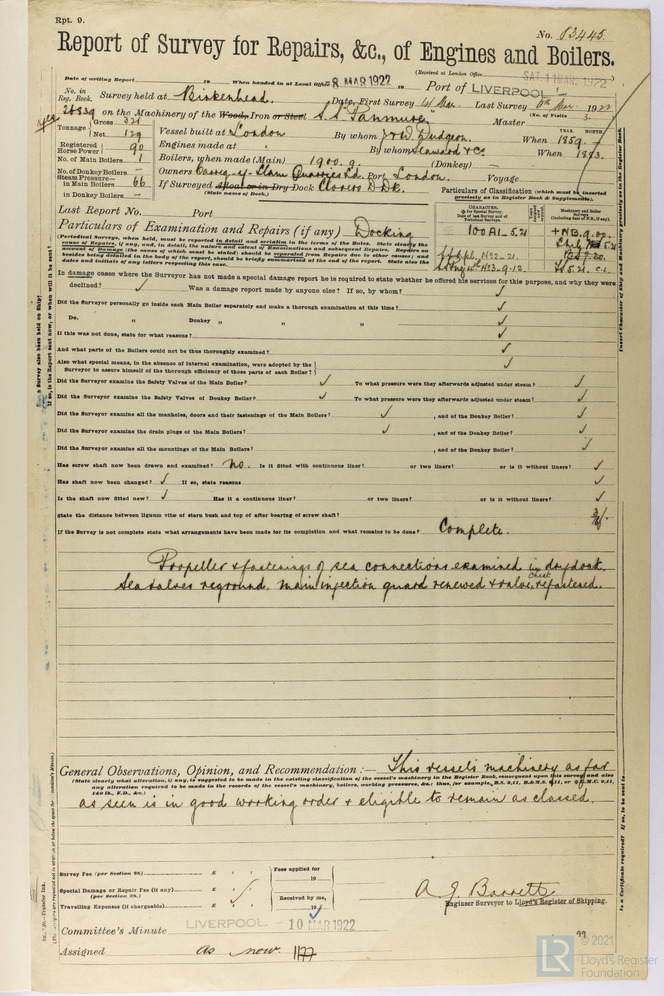 Rpt. 9.
No. 83445.
Report of Survey for Repairs, &c., of Engines and Boilers.
(Received at London Office
Date of writing Report 19 When handed in at Local Office 8 MAR 1922 Port of LIVERPOOL
No. in Reg. Book. Survey held at Birkenhead. Date, First Survey Last Survey 1922
on the Machinery of the Wood, Iron or Steel S.S. Panmure Master (No. of Visits 3.
Tonnage Gross 321 Net 129
Vessel built at London By whom J & W Dudgeon. When 1859
YEAR. MONTH.
Registered Horse Power 90
Engines made at By whom Seaward & Co When 1883.
No. of Main Boilers 1
Boilers, when made (Main) 1900.9. (Donkey) —
No. of Donkey Boilers —
Owners Carreg-y-Llam Quarries Ld. Port London. Voyage
Steam Pressure— in Main Boilers 66
in Donkey Boilers —
If Surveyed afloat or in Dry Dock Clovers D.Dk.
(State name of Dock.)
Particulars of Classification (which must be inserted precisely as in Register Book & Supplements).
Last Report No. Port
Particulars of Examination and Repairs (if any) Docking
(Periodical Surveys, when held, must be reported in detail and seriatim in the terms of the Rules. State clearly the
cause of Repairs, if any, and, in detail, the nature and extent of Examinations and subsequent Repairs. Repairs on
account of Damage (the cause of which must be stated) should be separated from Repairs due to other causes; and
besides being detailed in the body of the report, should be briefly summarised at the end of the report. State also the
dates and initials of any letters respecting this case.
100A1 - 5.21
+NB.9.00.
In damage cases where the Surveyor has not made a special damage report he is required to state whether he offered his services for this purpose, and why they were
declined? ✓ Was a damage report made by anyone else? If so, by whom? ✓
Did the Surveyor personally go inside each Main Boiler separately and make a thorough examination at this time? ✓
Do. „ Donkey „ „ „ ✓
If this was not done, state for what reasons? ✓
And what parts of the Boilers could not be thus thoroughly examined? ✓
Also what special means, in the absence of internal examination, were adopted by the
Surveyor to assure himself of the thorough efficiency of those parts of each Boiler? ✓
Did the Surveyor examine the Safety Valves of the Main Boiler? ✓ To what pressure were they afterwards adjusted under steam? ✓
Did the Surveyor examine the Safety Valves of Donkey Boiler? ✓ To what pressure were they afterwards adjusted under steam? ✓
Did the Surveyor examine all the manholes, doors and their fastenings of the Main Boilers? ✓ , and of the Donkey Boiler? ✓
Did the Surveyor examine the drain plugs of the Main Boilers? ✓ , and of the Donkey Boiler? ✓
Did the Surveyor examine all the mountings of the Main Boilers? , and of the Donkey Boiler? ✓
Has screw shaft now been drawn and examined? No. Is it fitted with continuous liner? or two liners? or is it without liners? ✓
Has shaft now been changed? ✓ If so, state reasons ✓
Is the shaft now fitted new? ✓ Has it a continuous liner? or two liners? or is it without liners? ✓
State the distance between lignum vitæ of stern bush and top of after bearing of screw shaft?
If the Survey is not complete state what arrangements have been made for its completion and what remains to be done? Complete.
Propeller & fastenings of sea connections examined in dry dock.
Sea valves reground. Main injection guard renewed & valve chest refastened.
General Observations, Opinion, and Recommendation :— This vessel's machinery as far
(State clearly what alteration, if any, is suggested to be made in the existing classification of the vessel's machinery in the Register Book, consequent upon this survey, and also
any alteration required to be made in the records of the vessel's machinery, boilers, working pressures, &c.;
as seen is in good working order & eligible to remain as classed.
Survey Fee (per Section 28) £
Fees applied for
19
Special Damage or Repair Fee (if any) £
(per Section 28.)
Received by me,
Travelling Expenses (if chargeable) £
19
A. J. Barrett
Engineer Surveyor to Lloyd's Register of Shipping.
Committee's Minute LIVERPOOL - 10 MAR 1922
Assigned as now
© 2021
LR
Lloyd's Register
Foundation